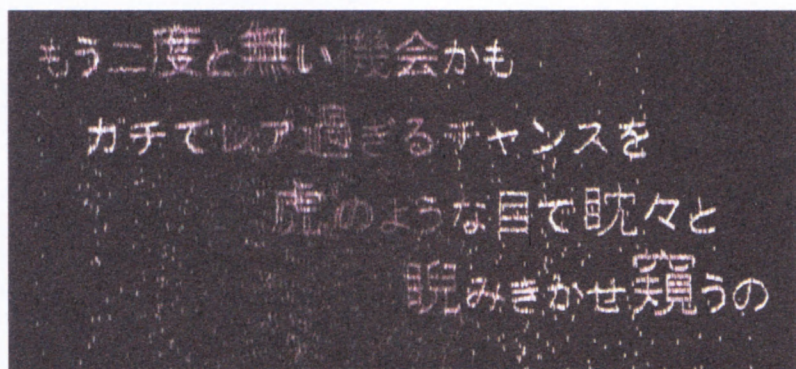 もう二度と無い機会かも
ガチでレア過ぎるチャンスを
虎のような目で眈々と
睨みきかせ窺うの